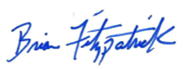 Brian Fitzpatrick